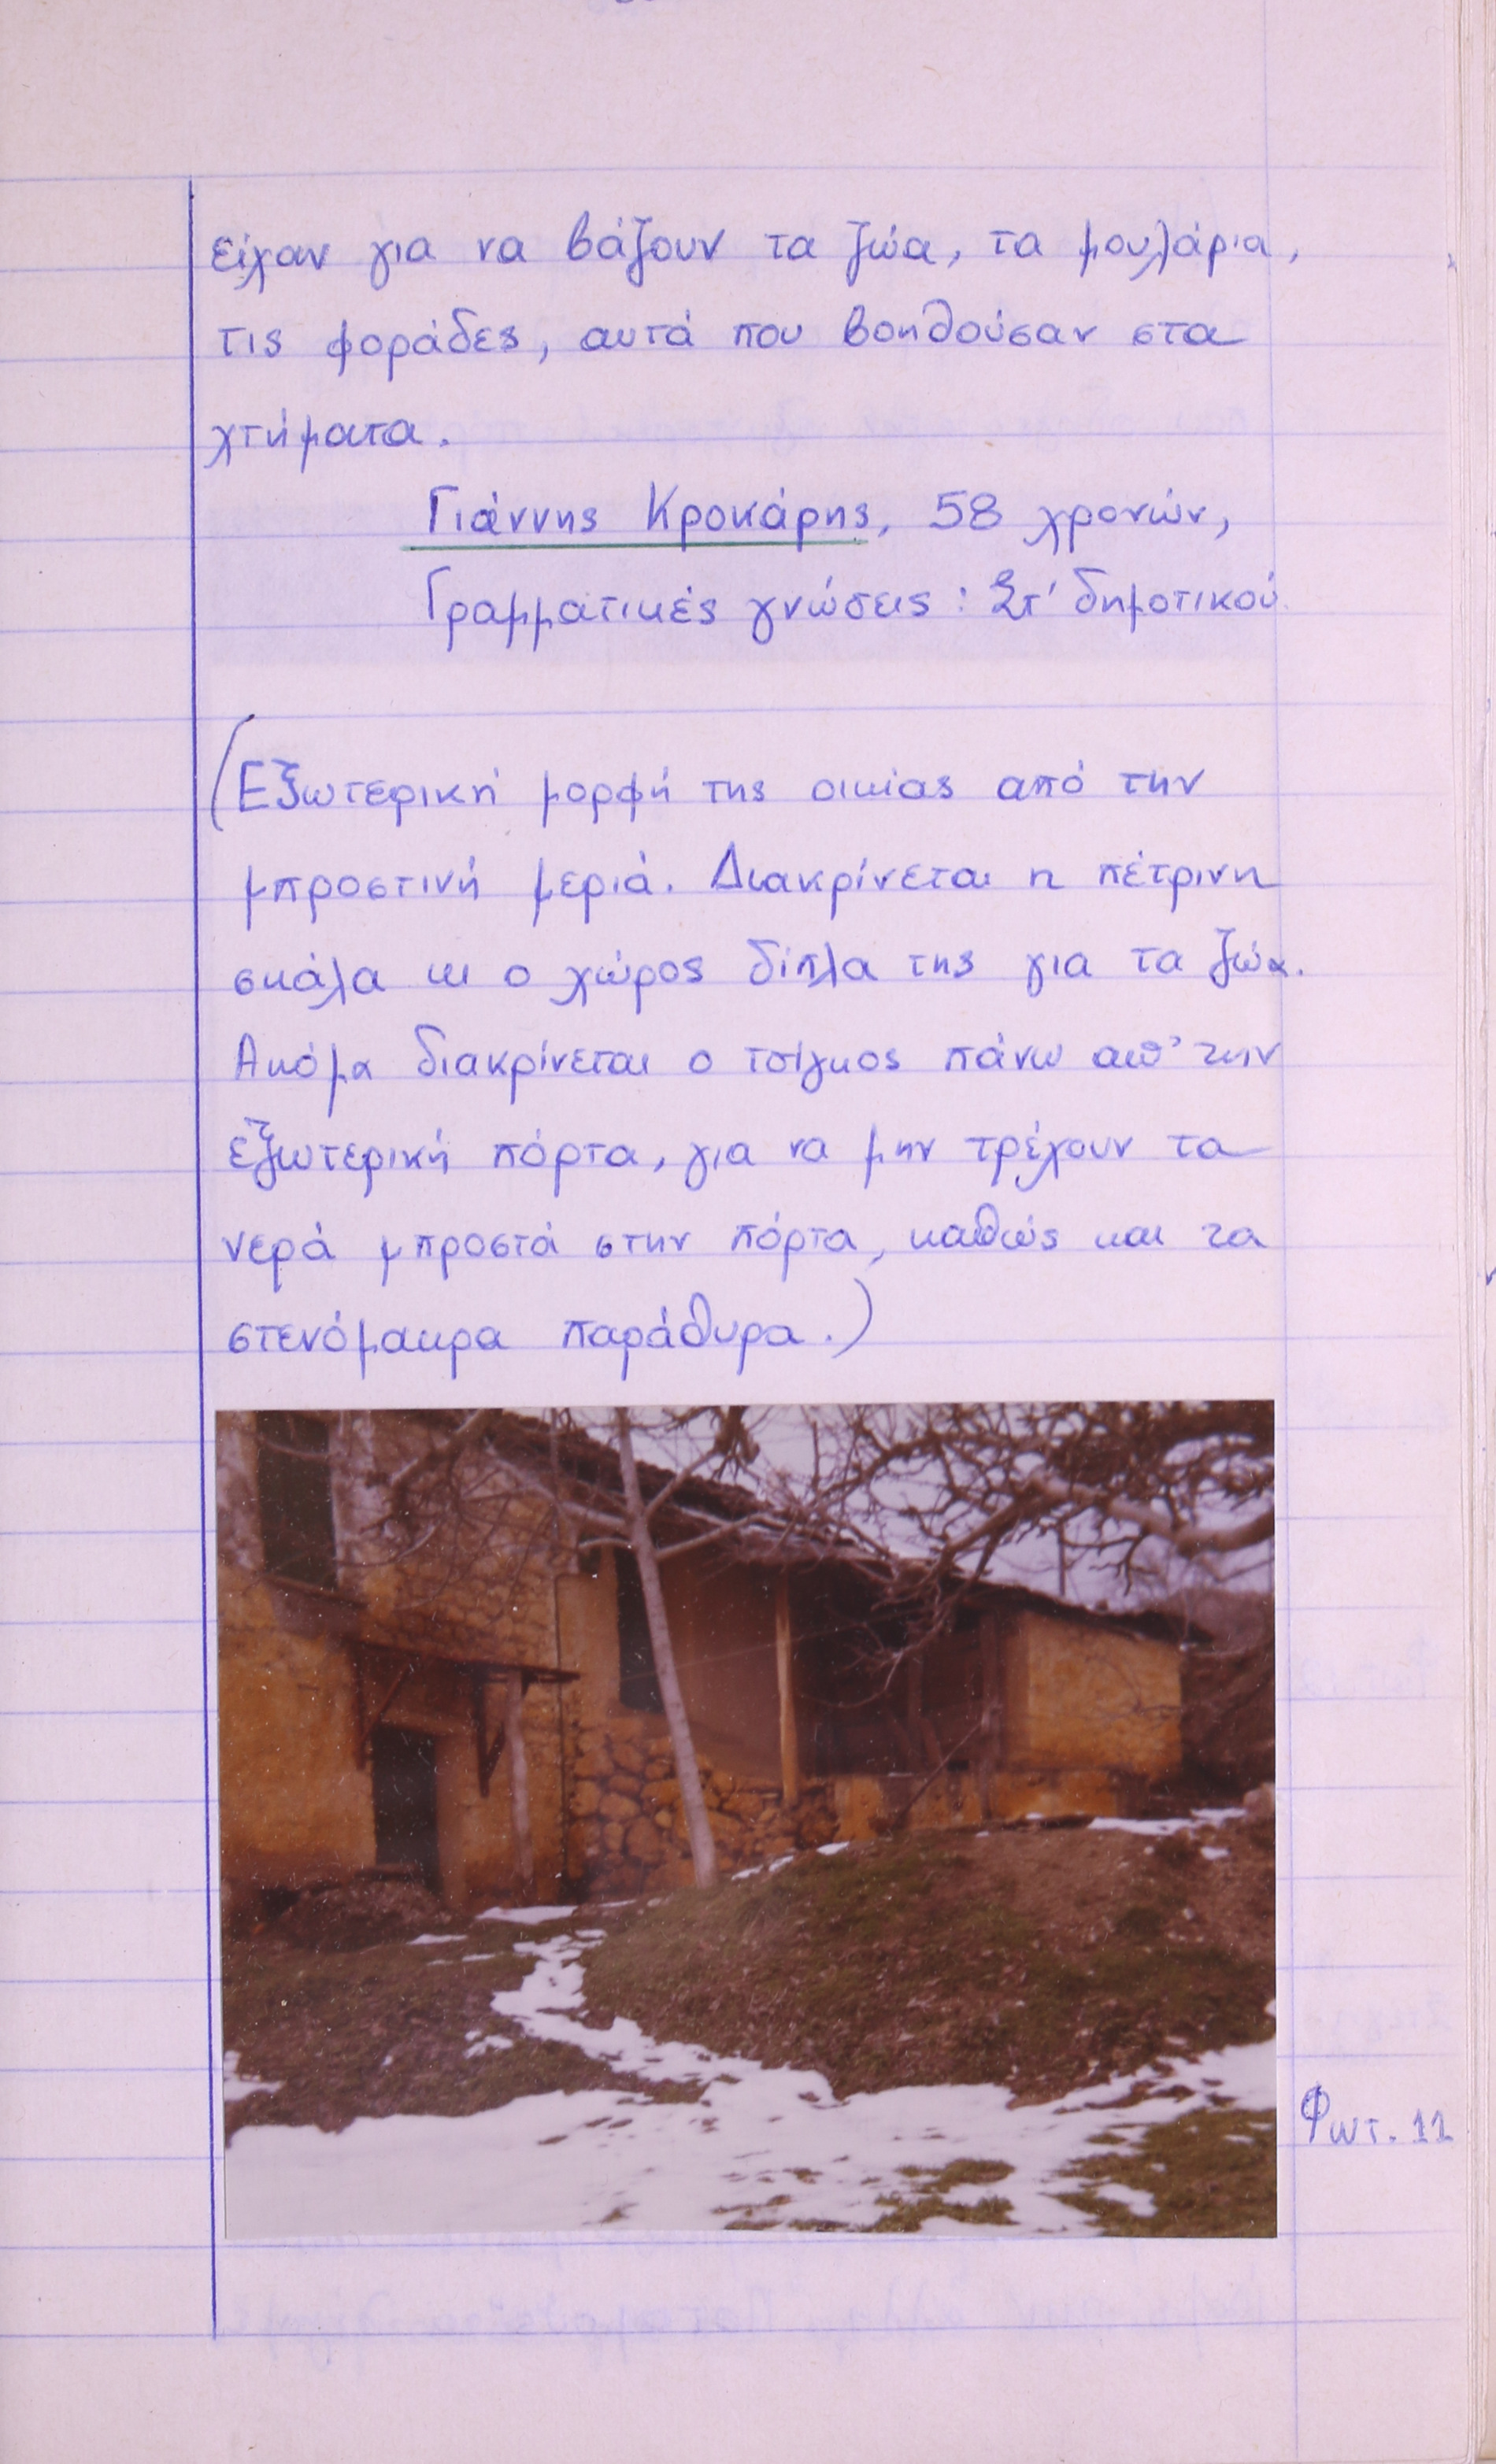 είχαν για να βάζουν τα ζώα, τα μουλάρια,
τις φοράδες, αυτά που βοηθούσαν στα
χτήματα.
Γιάννης Κροκάρης, 58 χρονών,
Γραμματικές γνώσεις : Στ' δημοτικού
(Εξωτερική μορφή της οικίας από την
μπροστινή μεριά. Διακρίνεται η πέτρινη
σκάλα κι ο χώρος δίπλα της για τα ζώα.
Ακόμα διακρίνεται ο τσίγκος πάνω απ' την
εξωτερική πόρτα, για να μην τρέχουν τα
νερά μπροστά στην πόρτα, καθώς και τα
στενόμακρα παράθυρα.)
Φωτ. 11